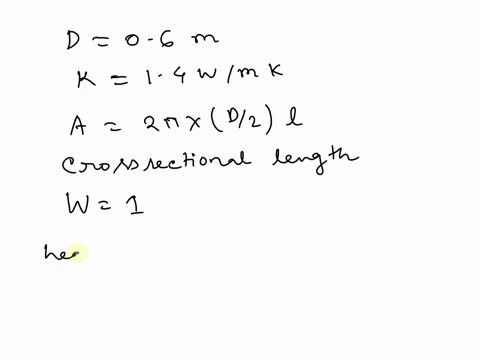 D = 0.6 m
K = 1.4 W/m K
A = 2π × (D/2) l
Crosssectional length
W = 1
hea